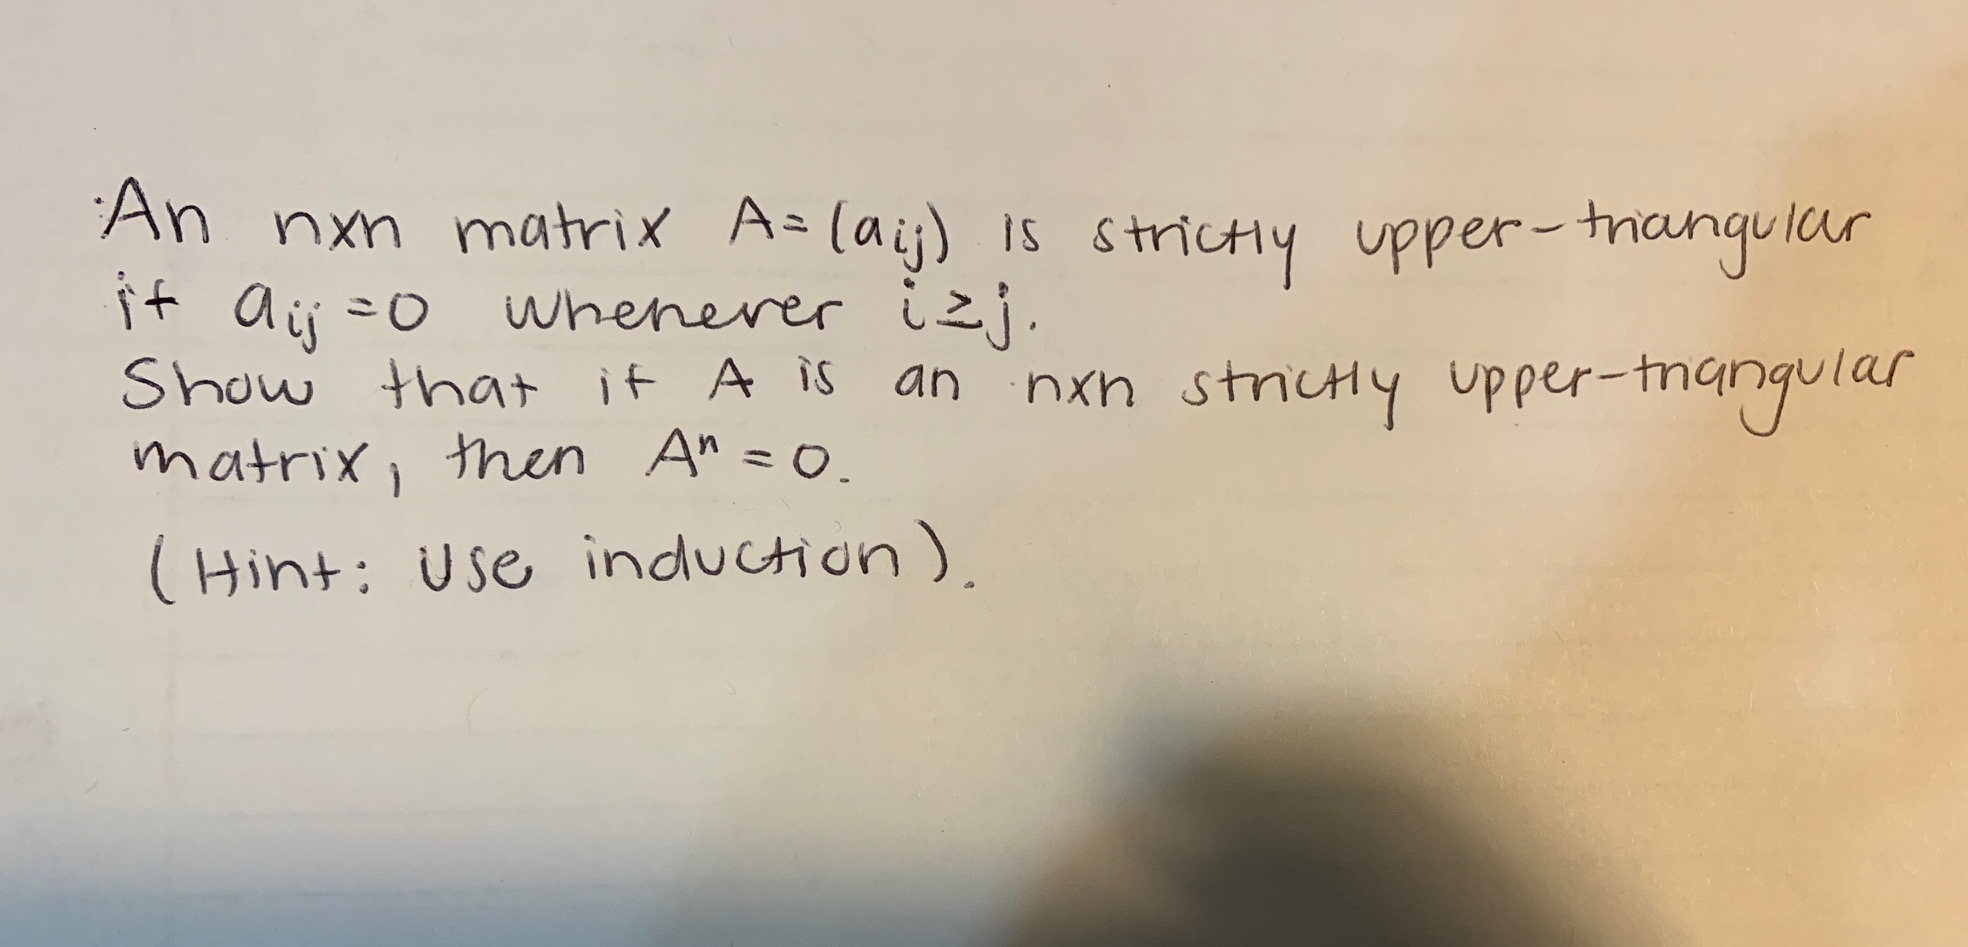 An nxn matrix A=(aij) is strictly upper-triangular
if aij=0 whenever i≥j.
Show that if A is an nxn strictly upper-triangular
matrix, then Aⁿ=0.
(Hint: Use induction).